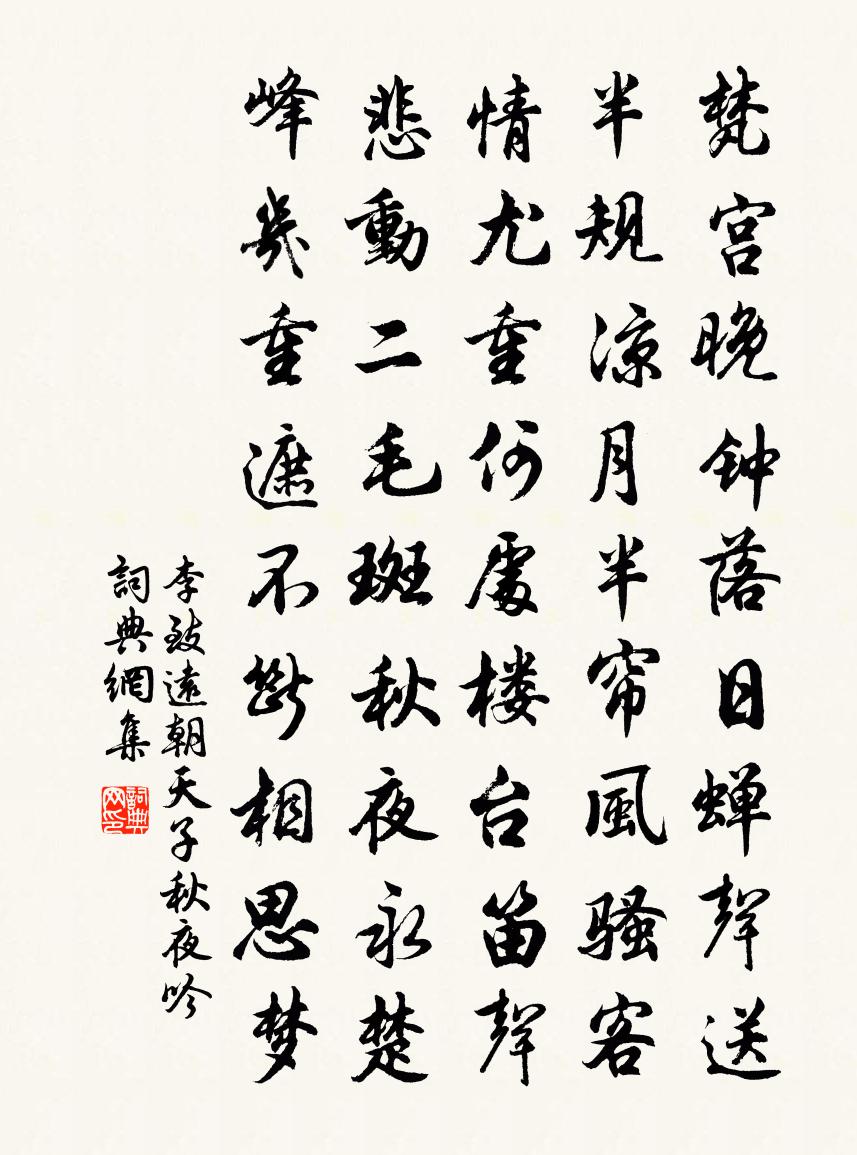 梵宫晚钟落日蝉聲送
半规凉月半帘風骚客
情尤重何處楼台笛聲
悲動二毛斑秋夜永楚
峰幾重遮不斷相思梦
李致遠朝天子秋夜吟
詞典網集
詞典网印